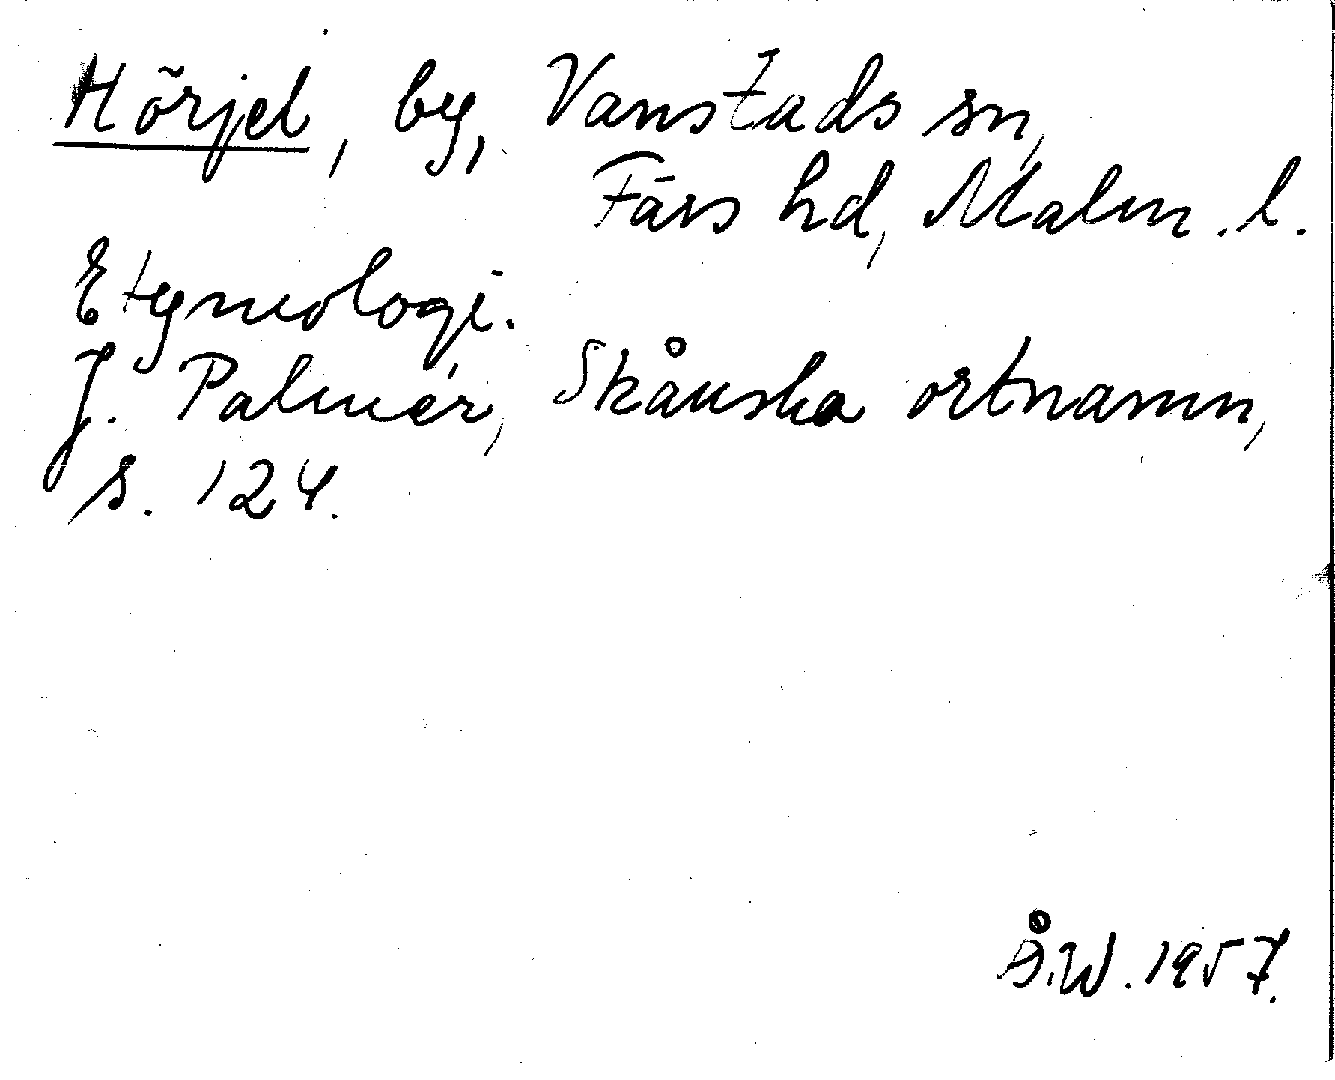 Hörjel, by, Vanstads sn,
Färs hd, Malm. l.
Etymologi.
J. Palmér, Skånska ortnamn,
s. 124.
Å.W. 1957.